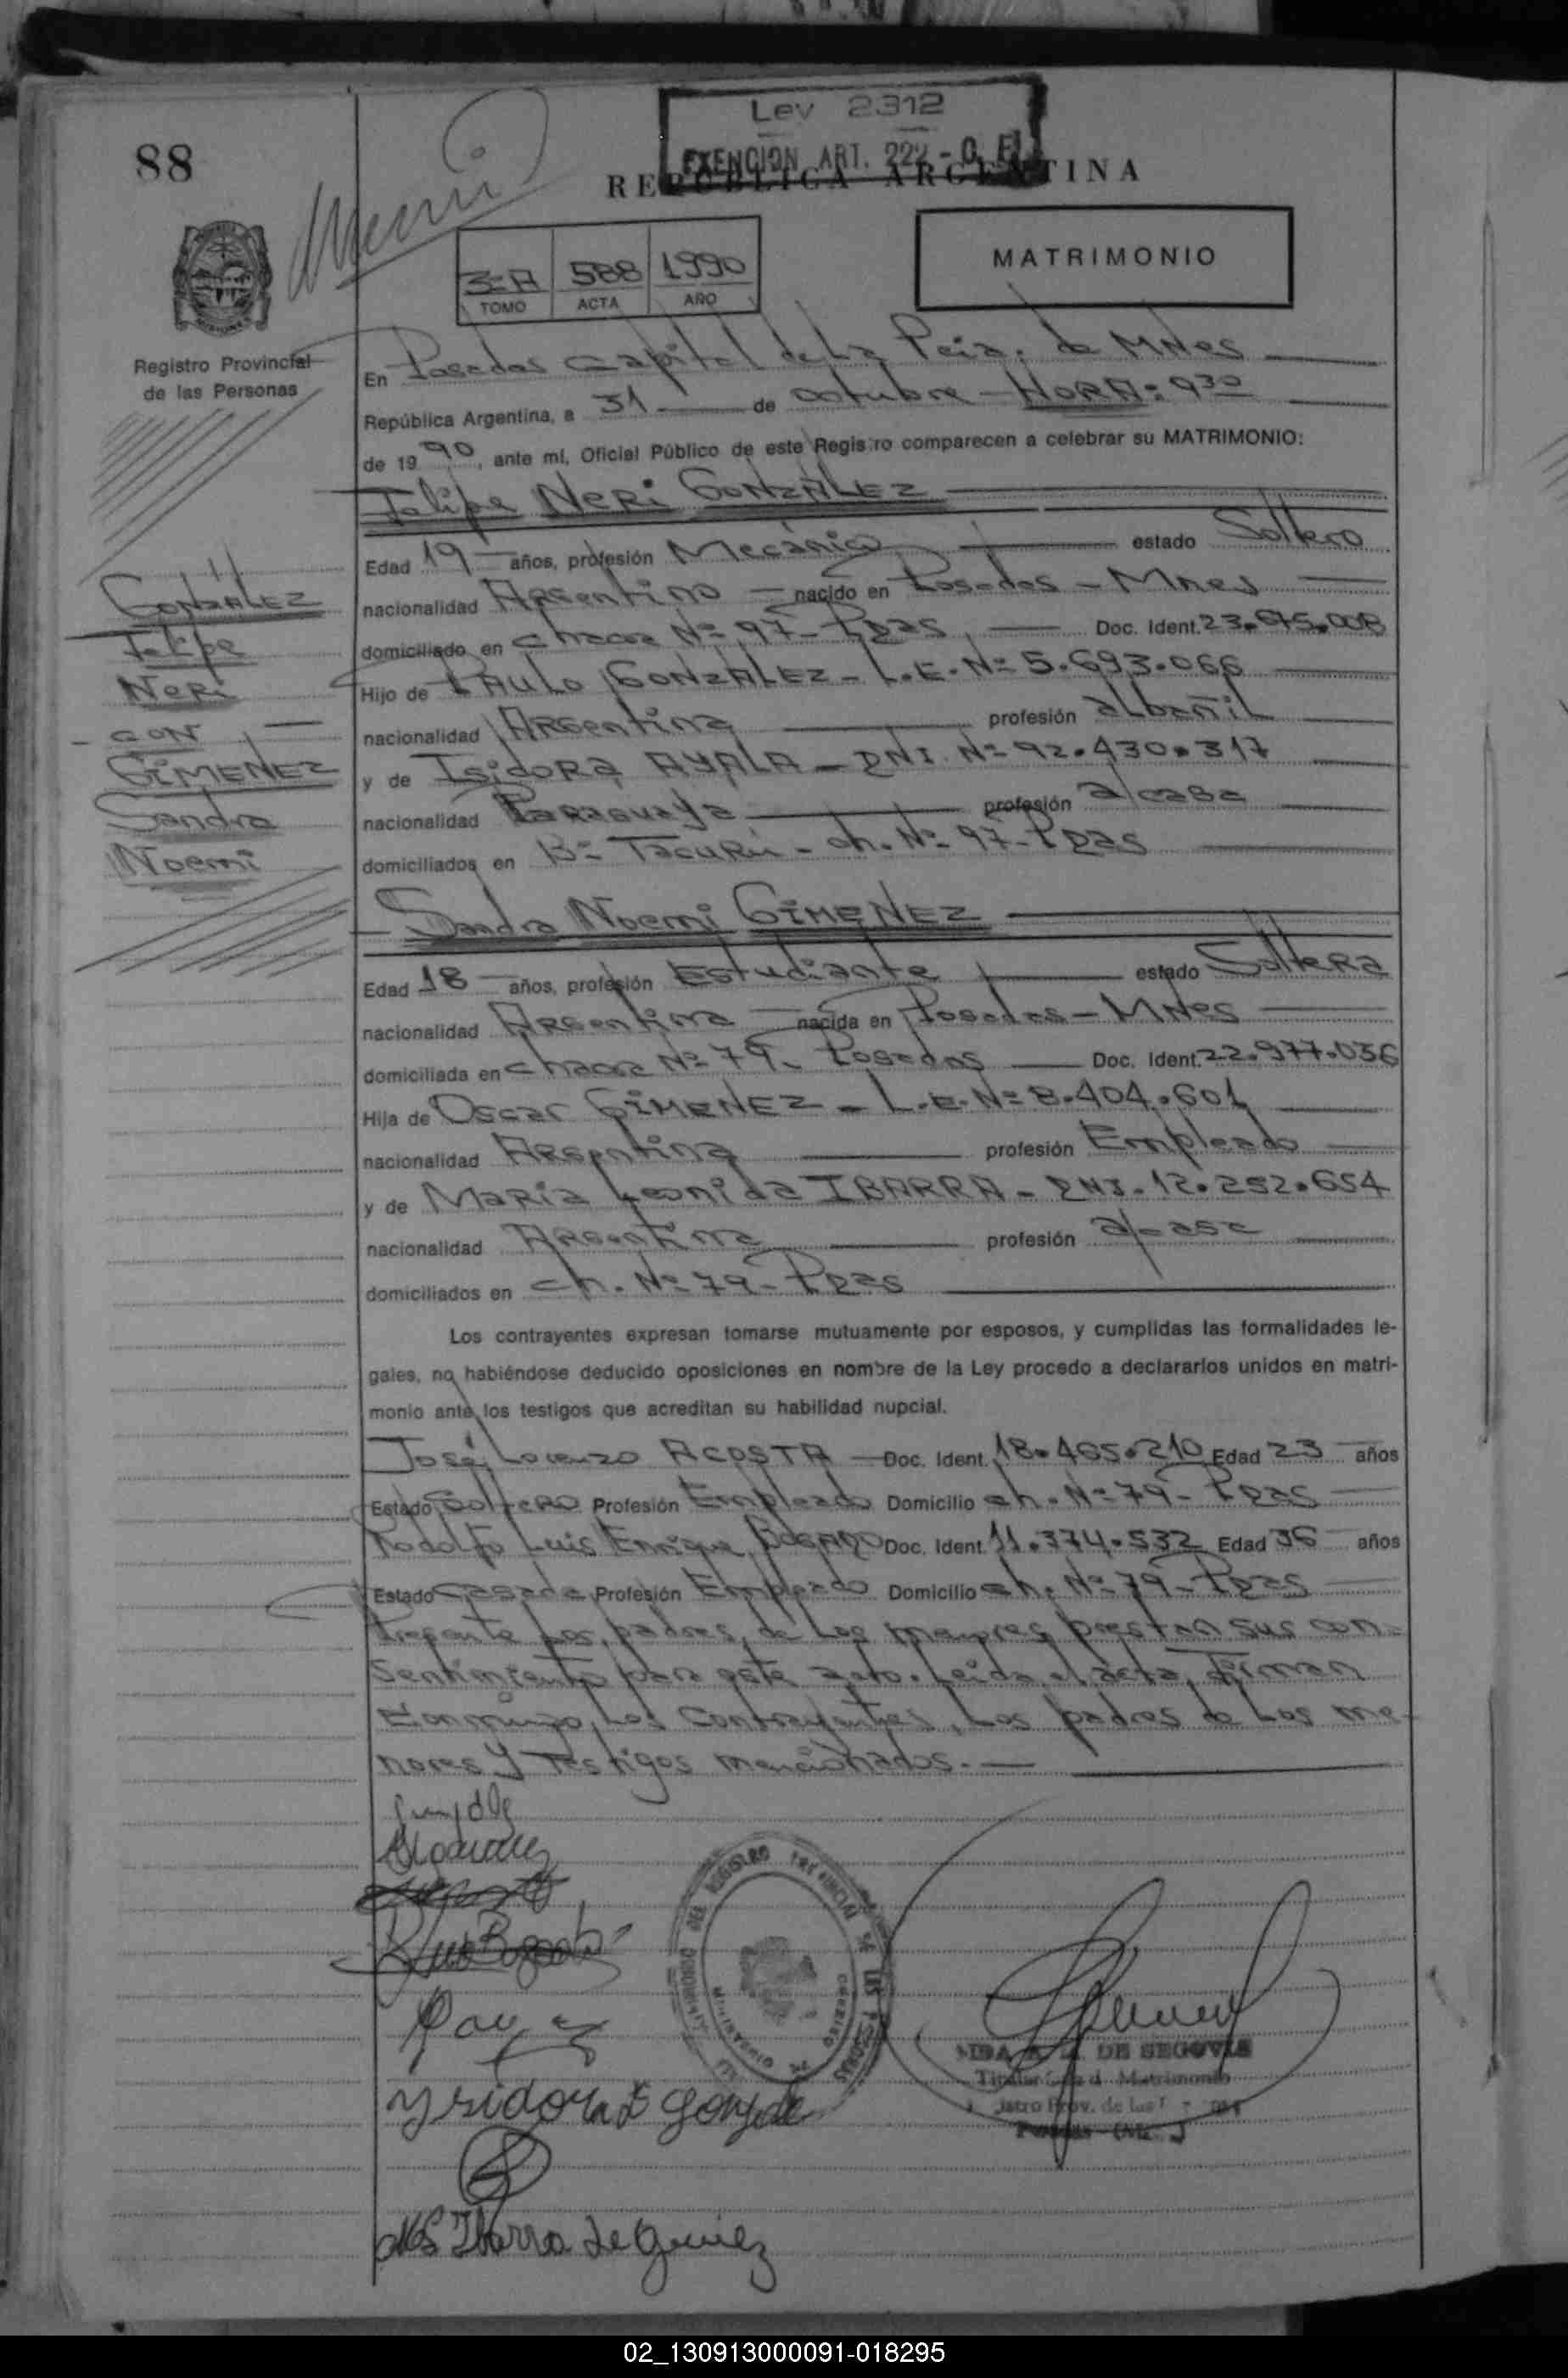 88
Ley 2312
EXENCION ART. 222 - O. F.
REPUBLICA ARGENTINA
3=A 588 1990
TOMO ACTA AÑO
MATRIMONIO
Registro Provincial
de las Personas
En Posadas Capital de La Pcia; de MNes
República Argentina, a 31 de octubre - HORA: 9 30
de 19 90, ante mí, Oficial Público de este Registro comparecen a celebrar su MATRIMONIO:
Felipe NeRi GONZÁLEZ
Edad 19 años, profesión Mecánico estado Soltero
nacionalidad Argentino nacido en Posadas - MNes
domiciliado en chacra Nº 97 - Pdas, Doc. Ident. 23.675.008
Hijo de PAULO GONZALEZ - L.E. Nº 5.693.066
nacionalidad Argentina profesión albañil
y de Isidora AYALA - DNI. Nº 92.430.317
nacionalidad Paraguaya profesión a/casa
domiciliados en Bº Tacurú - ch. Nº 97 - Pdas
GONZALEZ
Felipe
NeRi
- CON -
GIMENEZ
Sandra
Noemi
Sandra Noemi GIMENEZ
Edad 18 años, profesión Estudiante estado Soltera
nacionalidad Argentina nacida en Posadas - MNes
domiciliada en chacra Nº 79 - Posadas Doc. Ident. 22.977.036
Hija de Oscar GIMENEZ - L.E. Nº 8.404.601
nacionalidad Argentina profesión Empleado
y de Maria Leonida IBARRA - DNI. 12.252.654
nacionalidad Argentina profesión a/casa
domiciliados en ch. Nº 79 - Pdas
Los contrayentes expresan tomarse mutuamente por esposos, y cumplidas las formalidades le-
gales, no habiéndose deducido oposiciones en nombre de la Ley procedo a declararlos unidos en matri-
monio ante los testigos que acreditan su habilidad nupcial.
José Lorenzo ACOSTA Doc. Ident. 18.465.210 Edad 23 años
Estado Soltero Profesión Empleado Domicilio ch. Nº 79 - Pdas
Rodolfo Luis Enrique BOGADO Doc. Ident. 11.374.532 Edad 36 años
Estado Casado Profesión Empleado Domicilio ch. Nº 79 - Pdas
Presente los padres de los menores prestan sus con-
sentimiento para este acto. Leida el acta, firman
conmigo, los contrayentes, los padres de los me-
nores y testigos mencionados.
REGISTRO PROVINCIAL DE LAS PERSONAS
DE SEGOVIA
Titular Matrimonio
Prov. de las
Posadas
Ysidora A gonzale
Ibarra de Gimenez
02_130913000091-018295